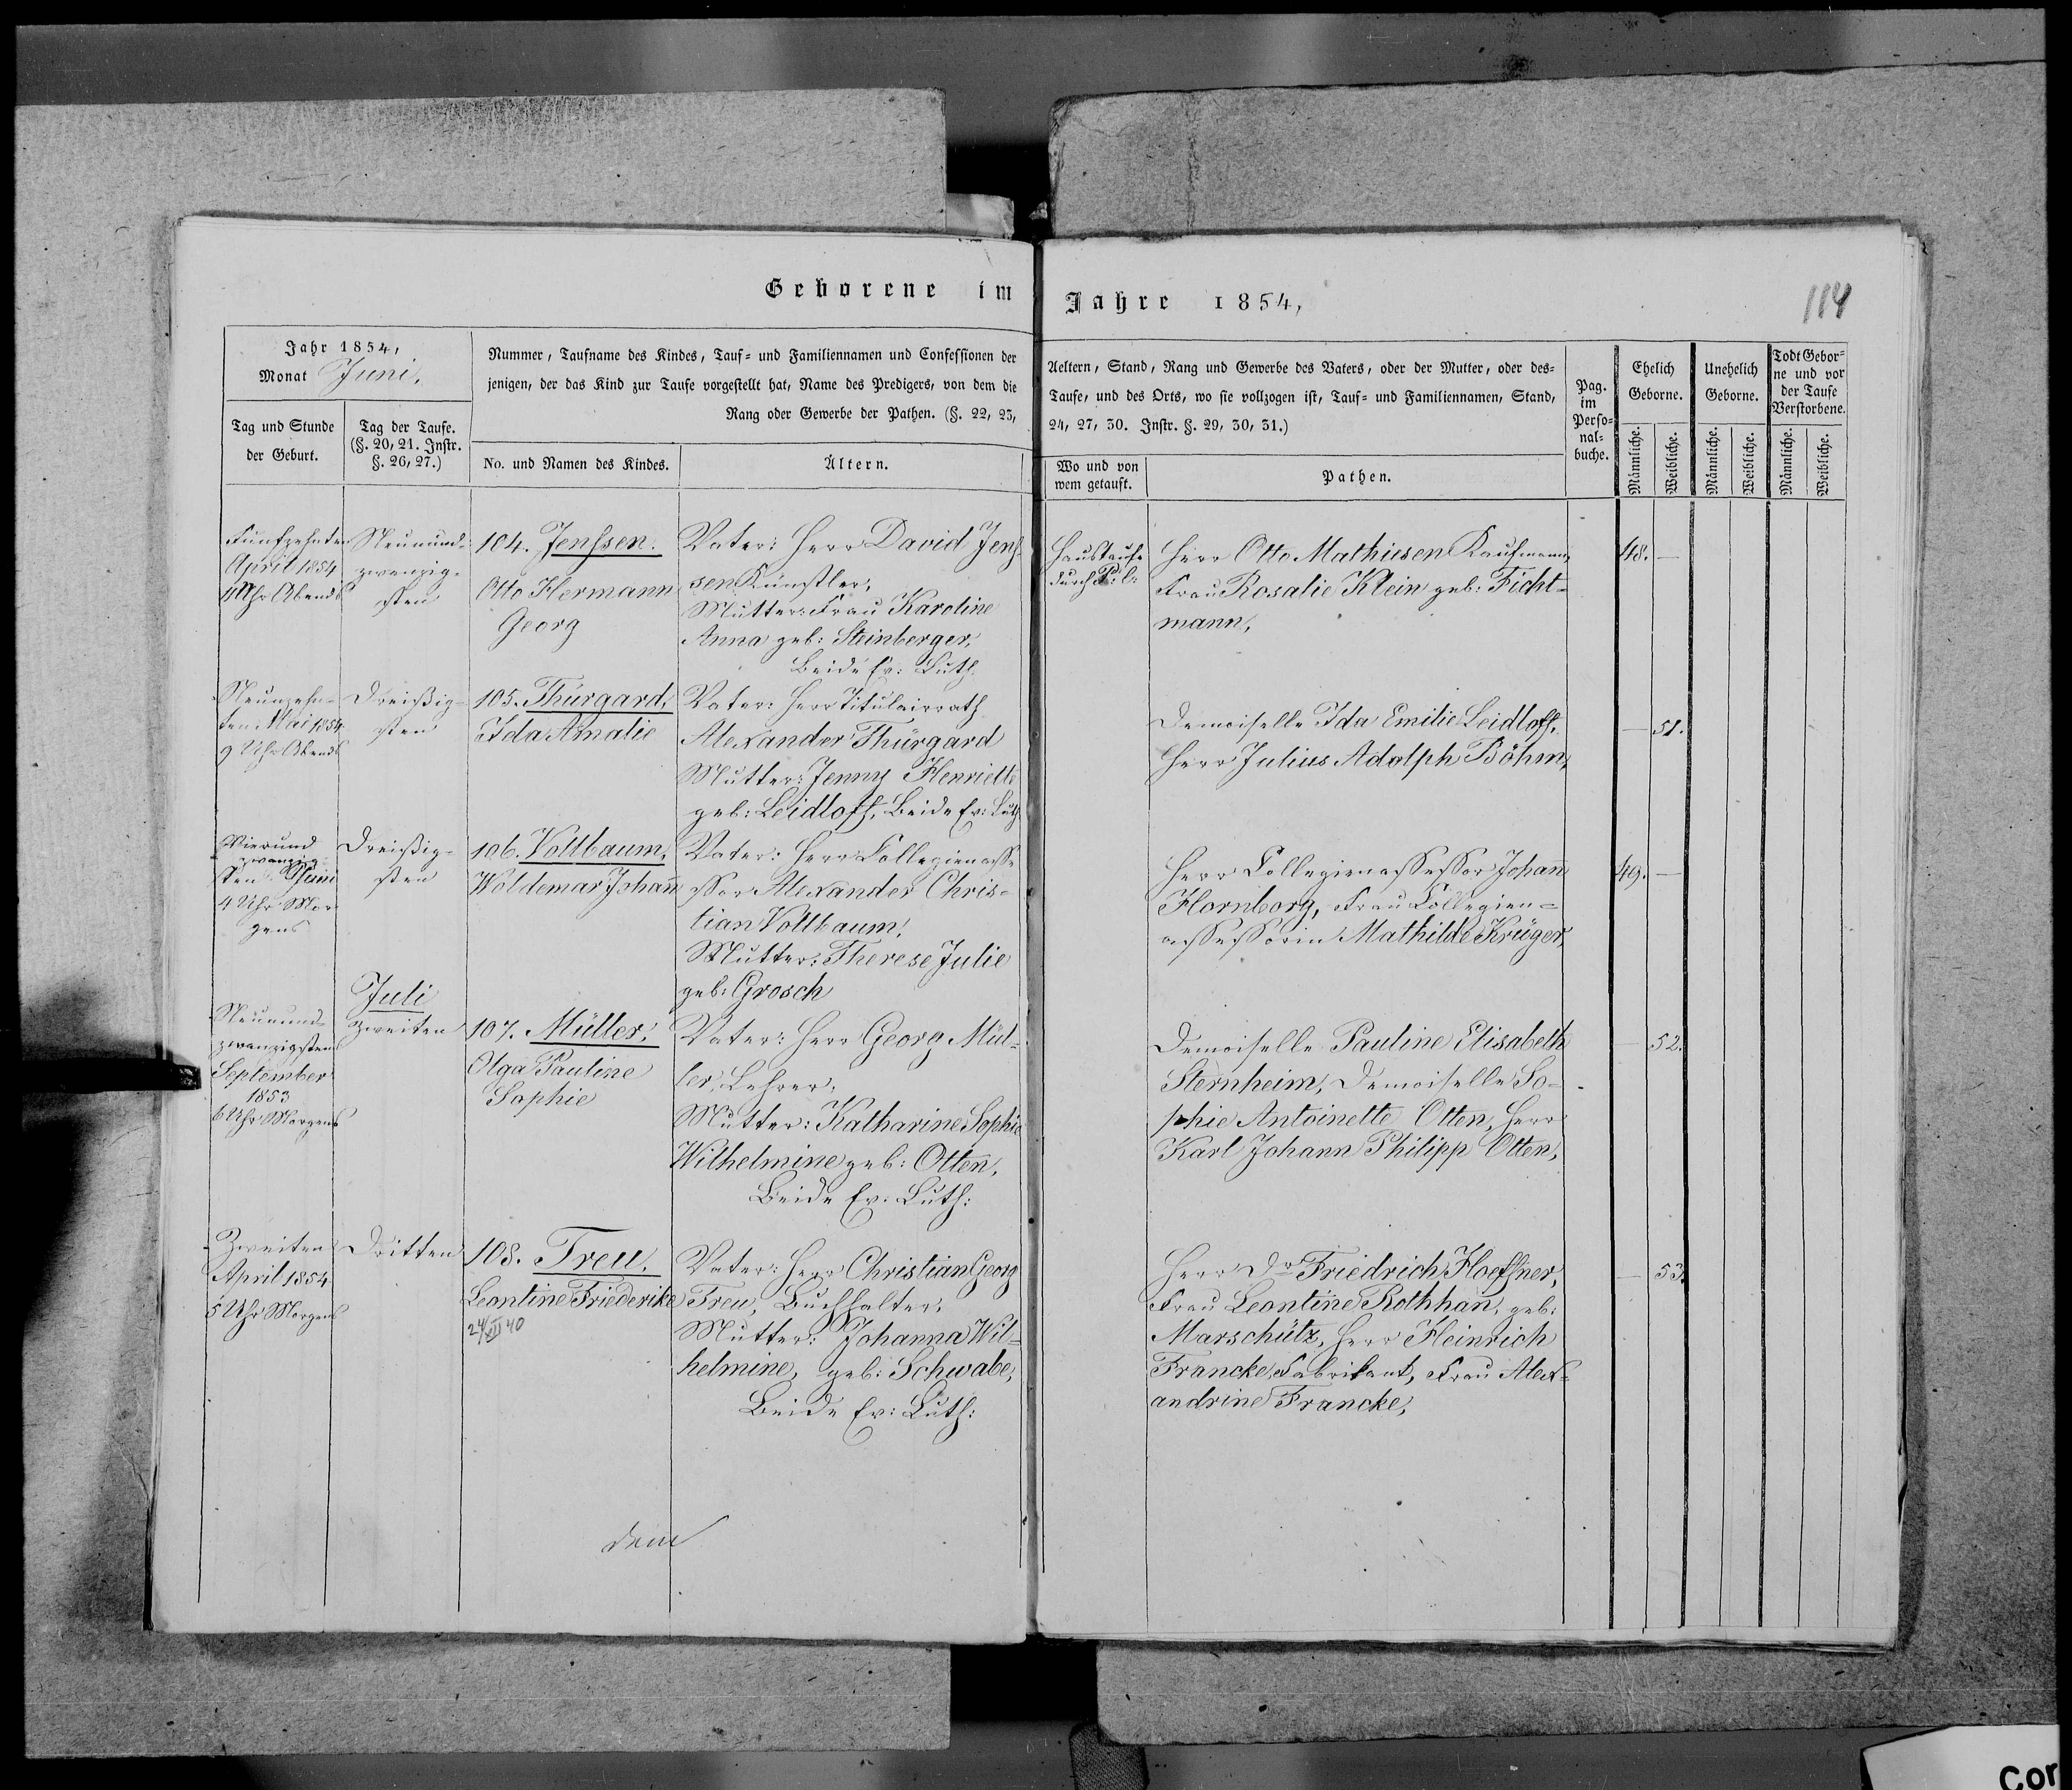 Geborene im Jahre 1854,
114
Jahr 1854,
Monat Juni.
Tag und Stunde
der Geburt.
Tag der Taufe.
(§. 20, 21. Instr.
§. 26, 27.)
Nummer, Taufname des Kindes, Tauf- und Familiennamen und Confessionen der
jenigen, der das Kind zur Taufe vorgestellt hat, Name des Predigers, von dem die
Rang oder Gewerbe der Pathen. (§. 22, 23,
No. und Namen des Kindes.
Ältern.
Aeltern, Stand, Rang und Gewerbe des Vaters, oder der Mutter, oder des-
Taufe, und des Orts, wo sie vollzogen ist, Tauf- und Familiennamen, Stand,
24, 27, 30. Instr. §. 29, 30, 31.)
Wo und von
wem getauft.
Pathen.
Pag.
im
Perso-
nal-
buche.
Ehelich
Geborne.
Männliche.
Weibliche.
Unehelich
Geborne.
Männliche.
Weibliche.
Todt Gebor-
ne und vor
der Taufe
Verstorbene.
Männliche.
Weibliche.
Fünfzehnten
April 1854
Uhr Abends
Neunund-
zwanzig-
sten
104. Jenssen.
Otto Hermann
Georg
Vater: Herr David Jens-
sen Künstler,
Mutter: Frau Karoline
Anna geb: Steinberger,
Beide Ev: Luth.
Haustaufe
durch P: C:
Herr Otto Mathiesen Kaufmann,
Frau Rosalie Klein geb: Ficht-
mann,
48. —
Neunzehn-
ten Mai 1854
9 Uhr Abends
Dreißig-
sten
105. Thürgard,
Ida Amalie
Vater: Herr Titulairrath
Alexander Thürgard
Mutter: Jenny Henriette
geb: Leidloff, Beide Ev: Luth
Demoiselle Ida Emilie Leidloff,
Herr Julius Adolph Böhm,
— 51.
Vierund
zwanzig-
sten Juni
4 Uhr Mor
gens
Dreißig-
sten
106. Vollbaum,
Woldemar Johann
Vater: Herr Collegienasse
ssor Alexander Chris-
tian Vollbaum,
Mutter: Therese Julie
geb: Grosch
Herr Collegienassessor Johann
Hornborg, Frau Collegien-
assessorin Mathilde Krüger,
49. —
Juli
Neunund-
zwanzigsten
September
1853
6 Uhr Morgens
Zweiten
107. Müller,
Olga Pauline
Sophie
Vater: Herr Georg Mül-
ler, Lehrer,
Mutter: Katharine Sophie
Wilhelmine geb: Otten,
Beide Ev: Luth:
Demoiselle Pauline Elisabeth
Sternheim, Demoiselle So-
phie Antoinette Otten, Herr
Karl Johann Philipp Otten,
— 52.
Zweiten
April 1854
5 Uhr Morgens
Dritten
108. Treu,
Leontine Friederike
24/XII 40
Vater: Herr Christian Georg
Treu, Buchhalter,
Mutter: Johanna Wil-
helmine, geb: Schwabe,
Beide Ev: Luth:
Herr Dr Friedrich Hoeffner,
Frau Leontine Rothhan, geb:
Marschütz, Herr Heinrich
Francke, Fabrikant, Frau Alex-
andrine Francke,
— 53.
Cor